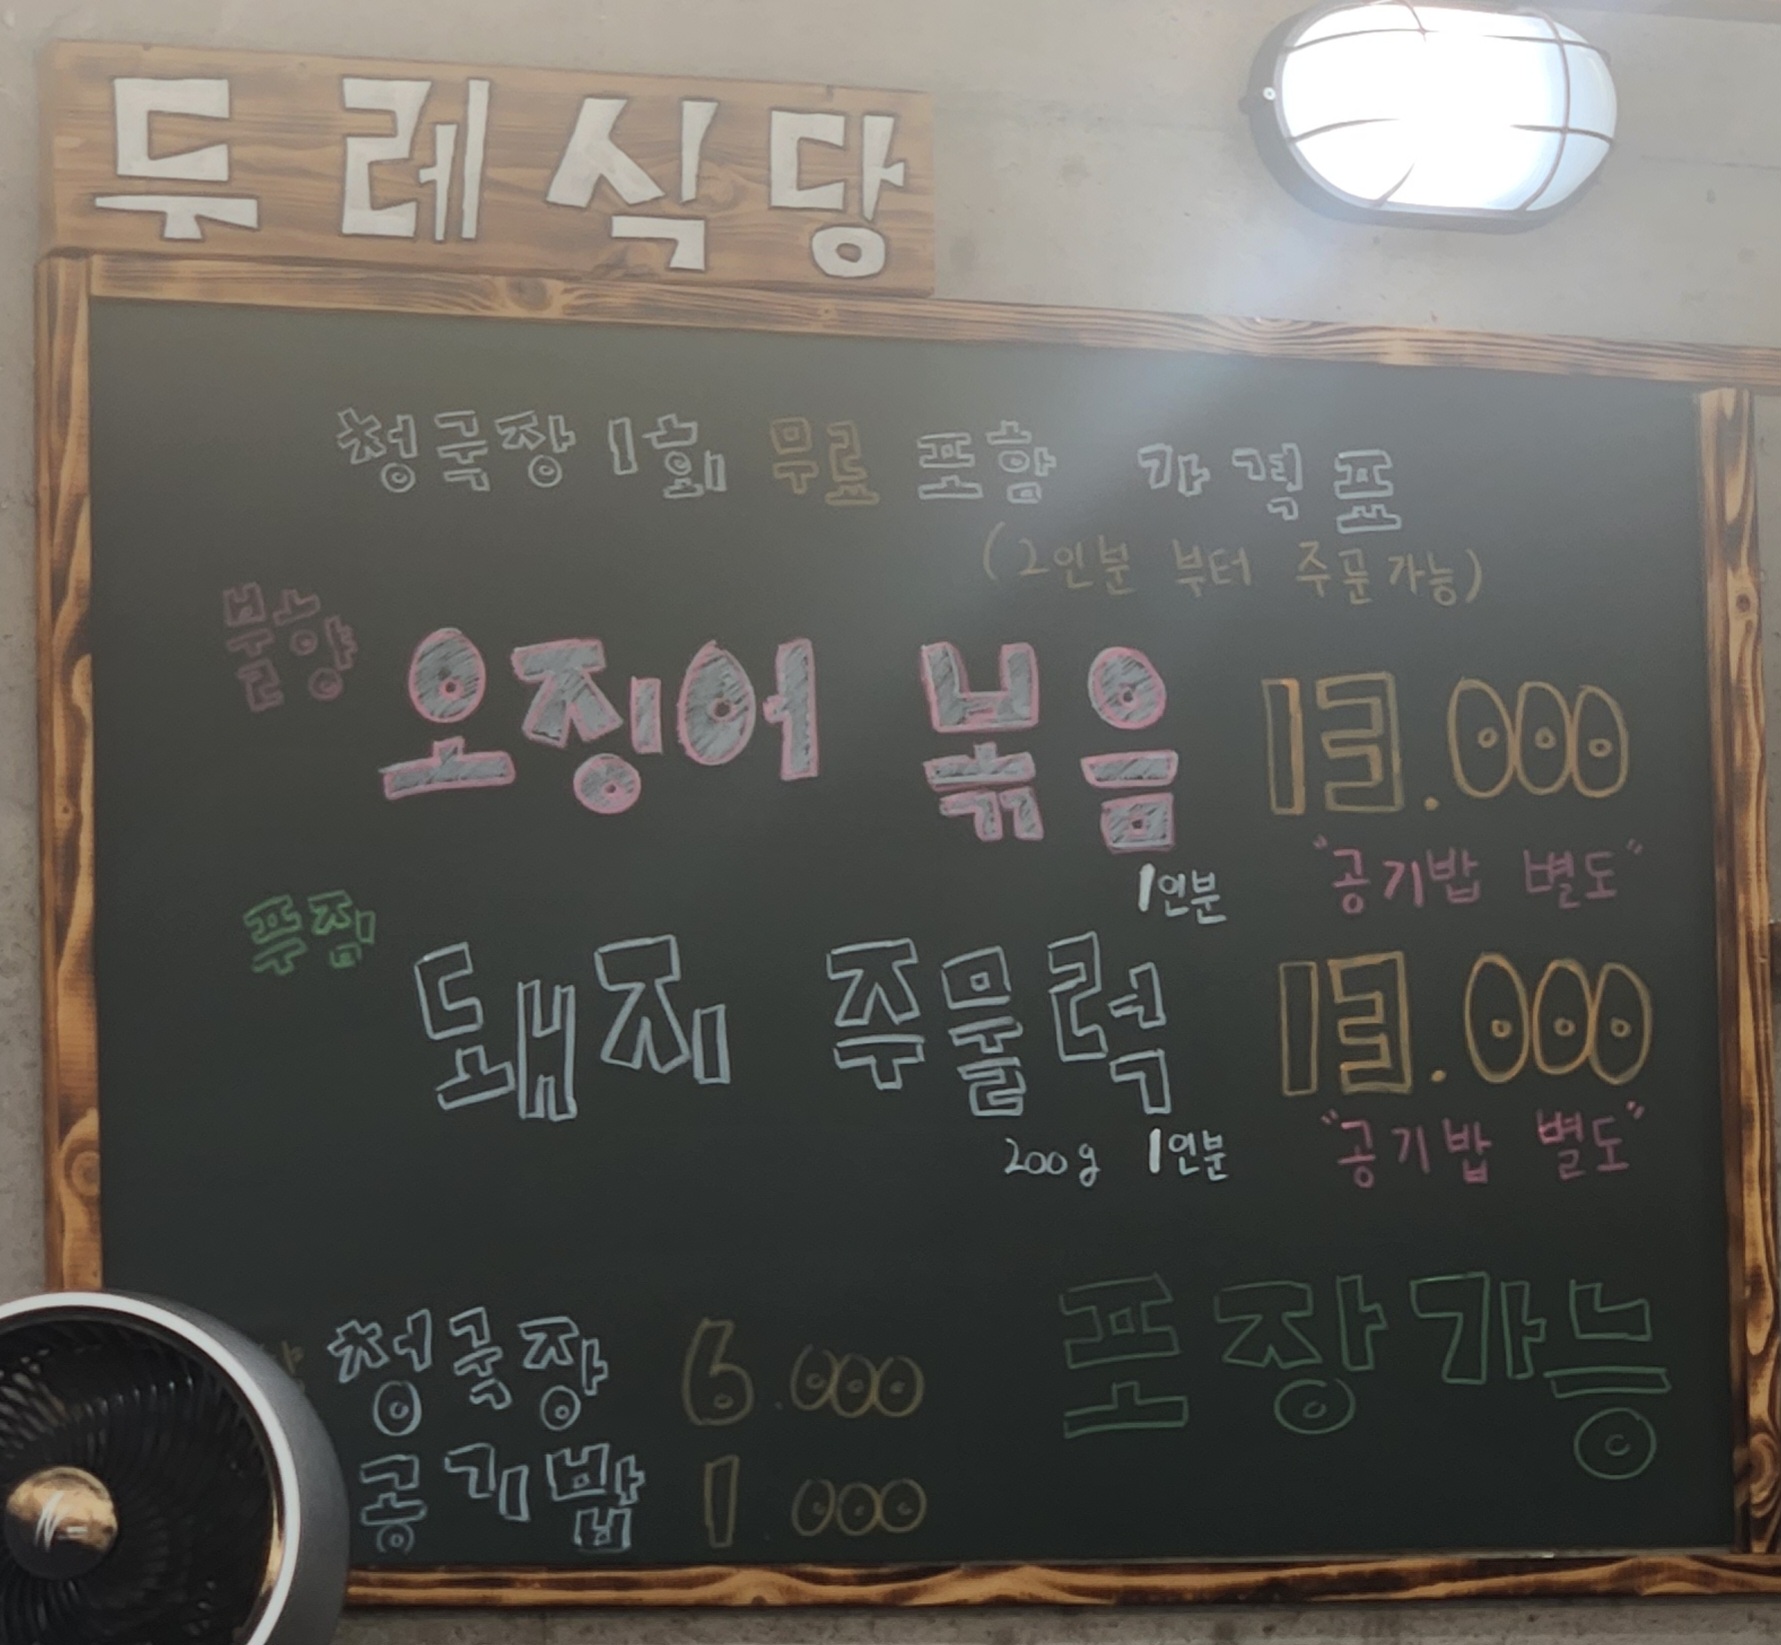 두레식당
청국장 1회 무료 포함 가격표
(2인분 부터 주문가능)
불향
오징어 볶음 13.000
1인분 "공기밥 별도"
푸짐
돼지 주물럭 13.000
200g 1인분 "공기밥 별도"
청국장 6.000
공기밥 1.000
포장가능